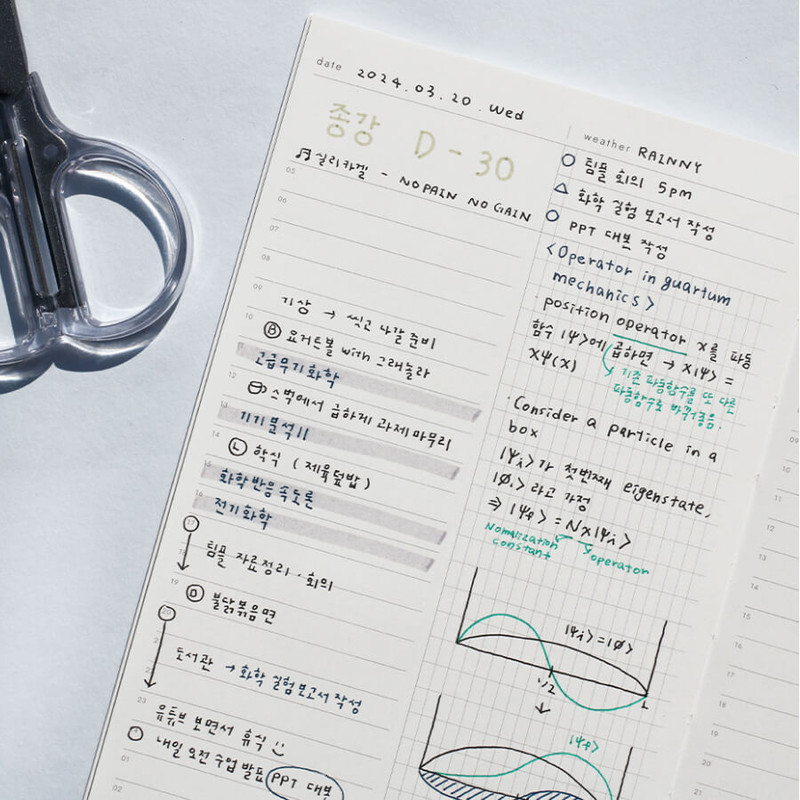 date 2024.03.20. Wed
종강 D-30
실리카겔 - NO PAIN NO GAIN
05
06
07
08
09
기상 → 씻고 나갈 준비
10
Ⓑ 요거트볼 with 그래놀라
고급무기화학
12
스벅에서 급하게 과제 마무리
13
기기분석 II
14
Ⓛ 학식 (제육덮밥)
15
화학반응속도론
16
전기화학
17
18
팀플 자료정리 · 회의
19
Ⓓ 불닭볶음면
20
도서관 → 화학 실험 보고서 작성
22
23
유튜브 보면서 휴식
내일 오전 수업 발표 PPT 대본
01
02
weather RAINNY
○ 팀플 회의 5pm
△ 화학 실험 보고서 작성
○ PPT 대본 작성
<Operator in quartum
mechanics>
· position operator x를 파동
함수 |Ψ>에 곱하면 → x|Ψ> =
xΨ(x)
기존 파동함수를 또 다른
파동함수로 바꿔줌.
· Consider a particle in a
box
|Ψi>가 첫번째 eigenstate,
|Øi>라고 가정
⇒ |Ψf> = Nx|Ψi>
Nomalization
constant
operator
|Ψi>=|Ø>
1/2
L
|Ψf>
10
11
12
13
14
15
16
17
18
19
20
21